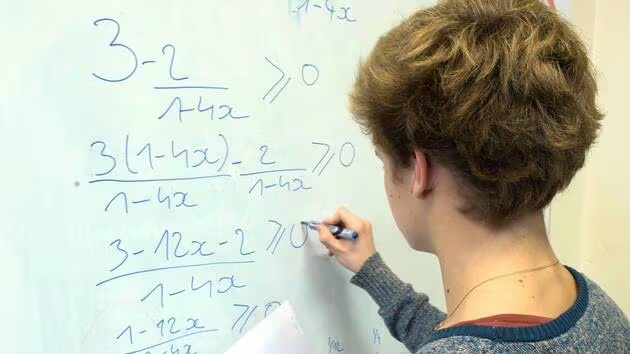 1-4x
3 - 2/(1-4x) ⩾ 0
3(1-4x)/(1-4x) - 2/(1-4x) ⩾ 0
(3-12x-2)/(1-4x) ⩾ 0
(1-12x)/(1-4x) ⩾ 0